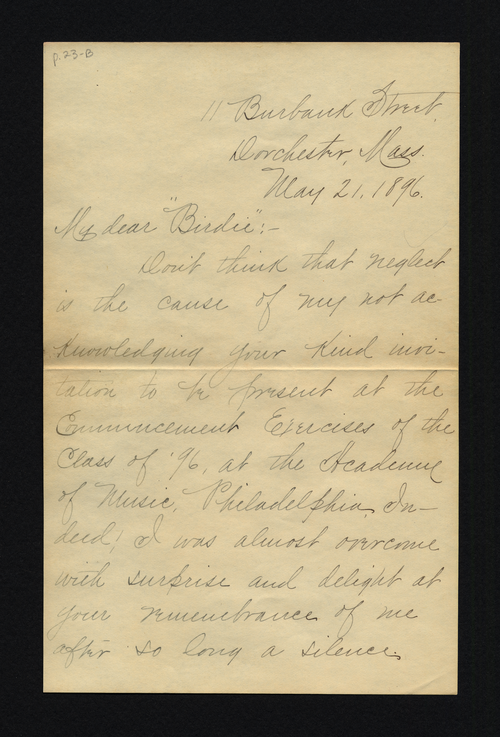 p. 23-B
11 Burbank Street,
Dorchester, Mass.
May 21, 1896.
My dear "Birdie":-
Don't think that neglect
is the cause of my not ac
knowledging your kind invi-
tation to be present at the
Commencement Exercises of the
Class of '96, at the Academy
of Music, Philadelphia. In-
deed, I was almost overcome
with surprise and delight at
your remembrance of me
after so long a silence.